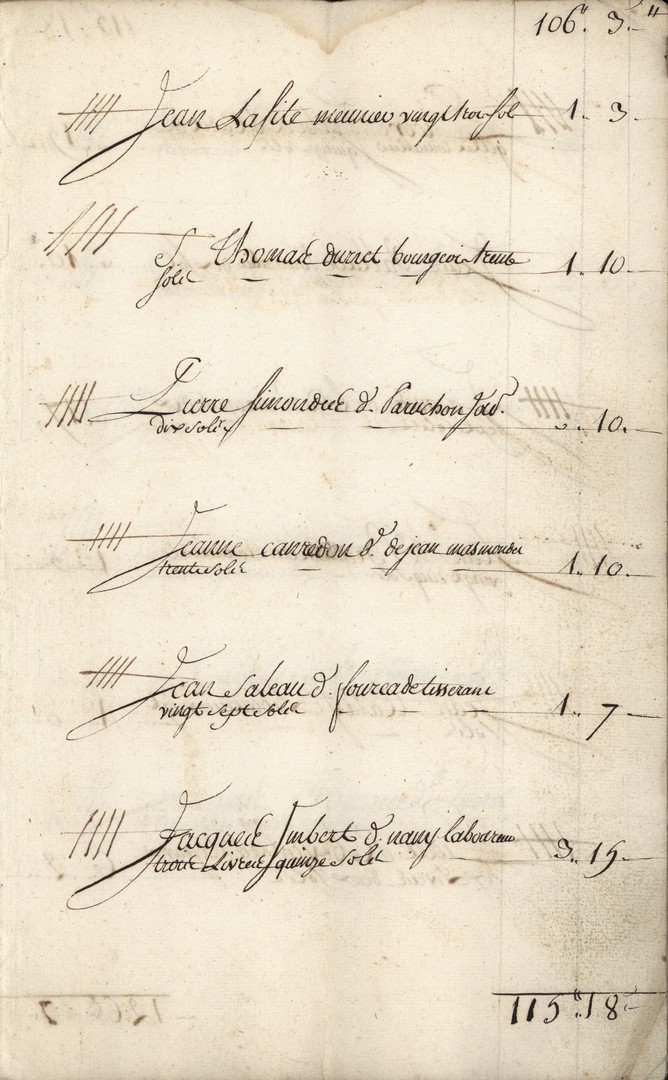 106ʺ. 3.ʺ
Jean Lafite meunier vingt trois sols 1. 3.
Sr Thomas durret bourgeois trente 1. 10.
solz
Pierre Simondet d. Paruchon
dix solz 10.
Jeanne canredon vᵉ. de jean masmondet
trente solz 1. 10.
Jean Saleau d. fourcade tisserant
vingt sept solz 1. 7
Jacques Imbert d. namy laboureur
trois Livres quinze solz 3. 15.
115ʺ. 18ʺ